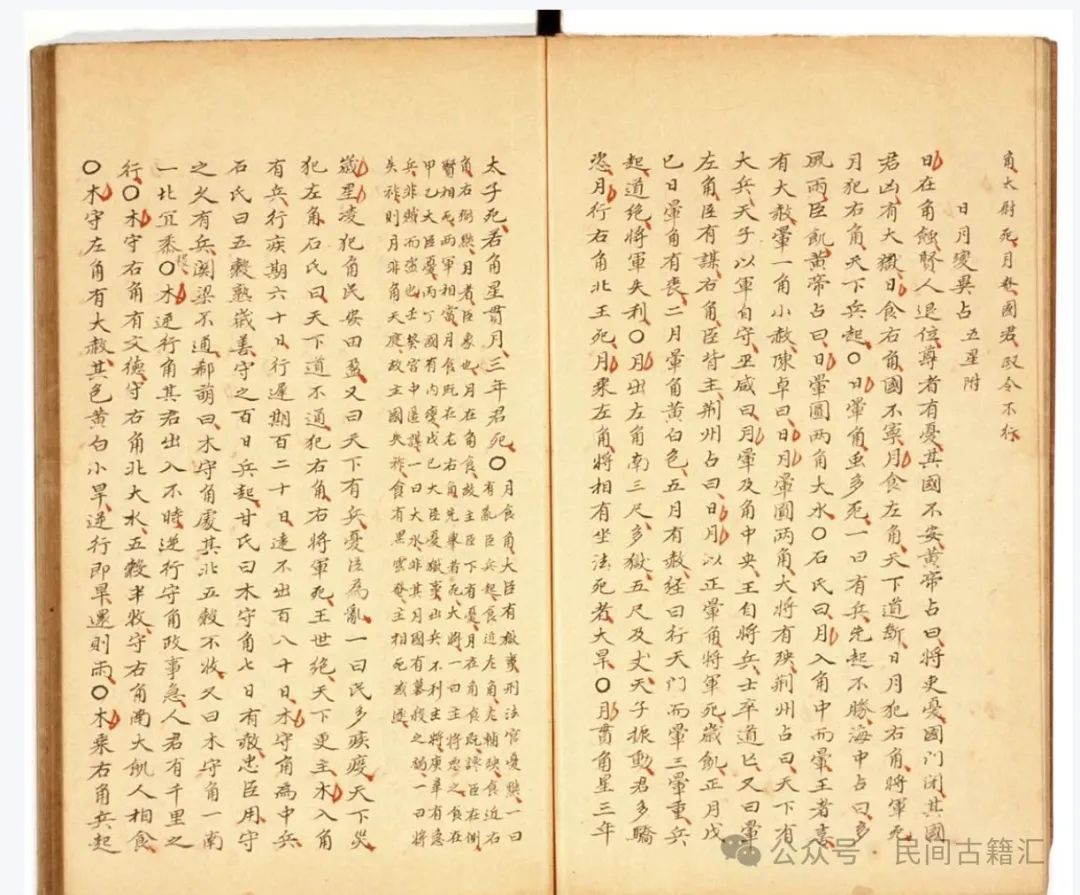 角大尉死月犇國君政令不行
日月變異占五星附
日在角蝕賢人退位尊者有憂其國不安黃帝占曰將吏憂國門閉其國
君凶有大獄日食右角國不寧月食左角天下道斷日月犯右角將軍死
月犯右角天下兵起〇日暈角虫多死一曰有兵先起不勝海中占曰多
風雨臣飢黃帝占曰日暈圍兩角大水〇石氏曰月入角中而暈王者憙
有大赦暈一角小赦陳卓曰日月暈圍兩角大將有殃荊州占曰天下有
大兵天子以軍自守巫咸曰月暈及角中央王自將兵士卒道亡又曰暈
左角臣有謀右角臣皆主荊州占曰日月以正暈角將軍死歲飢正月戊
巳日暈角有喪二月暈角黃白色五月有赦經曰行天門而暈三暈重兵
起道絕將軍失利〇月出左角南三尺多獄五尺及丈天子振動君多驕
恣月行右角北王死月乘左角將相有坐法死者大旱〇月貫角星三年
太子死若角星貫月三年君死〇月食角大臣有獄事刑法官憂黜一曰
有亂臣兵起食近左角左輔殃食近右
角右弼黜日者臣象也月在角食故主臣下有憂月在角食既讒臣在側
賢相死兩軍相當月食既在左右角先舉者死大將一曰主將惡之食在
甲乙大臣憂丙丁國有內變戊巳大臣憂獄事出兵不利主將庚辛有急
兵非賊而盜也壬癸宮中匿謀一曰大水非其月國有篡殺之禍一曰將
失祚則月非角天庭故主國失祚食有黑雲發主相死或遷
歲星凌犯角民安曰盈又曰天下有兵憂臣為亂一曰民多疾疫天下災
犯左角石氏曰天下道不通犯右角右將軍死王世絕天下更主木入角
有兵行疾期六十日行遲期百二十日遠不出百八十日木守角為中兵
石氏曰五穀熟歲善守之百日兵起甘氏曰木守角七日有敵忠臣用守
之久有兵關梁不通郗萌曰木守角處其北五穀不收又曰木守角一南
一北宜黍稷〇木逆行角其君出入不時逆行守角政事急人君有千里之
行〇木守右角有文德守右角北大水五穀半收守右角南大飢人相食
〇木守左角有大赦其色黃白小旱逆行即旱還則雨〇木乘右角兵起
公众号·民间古籍汇